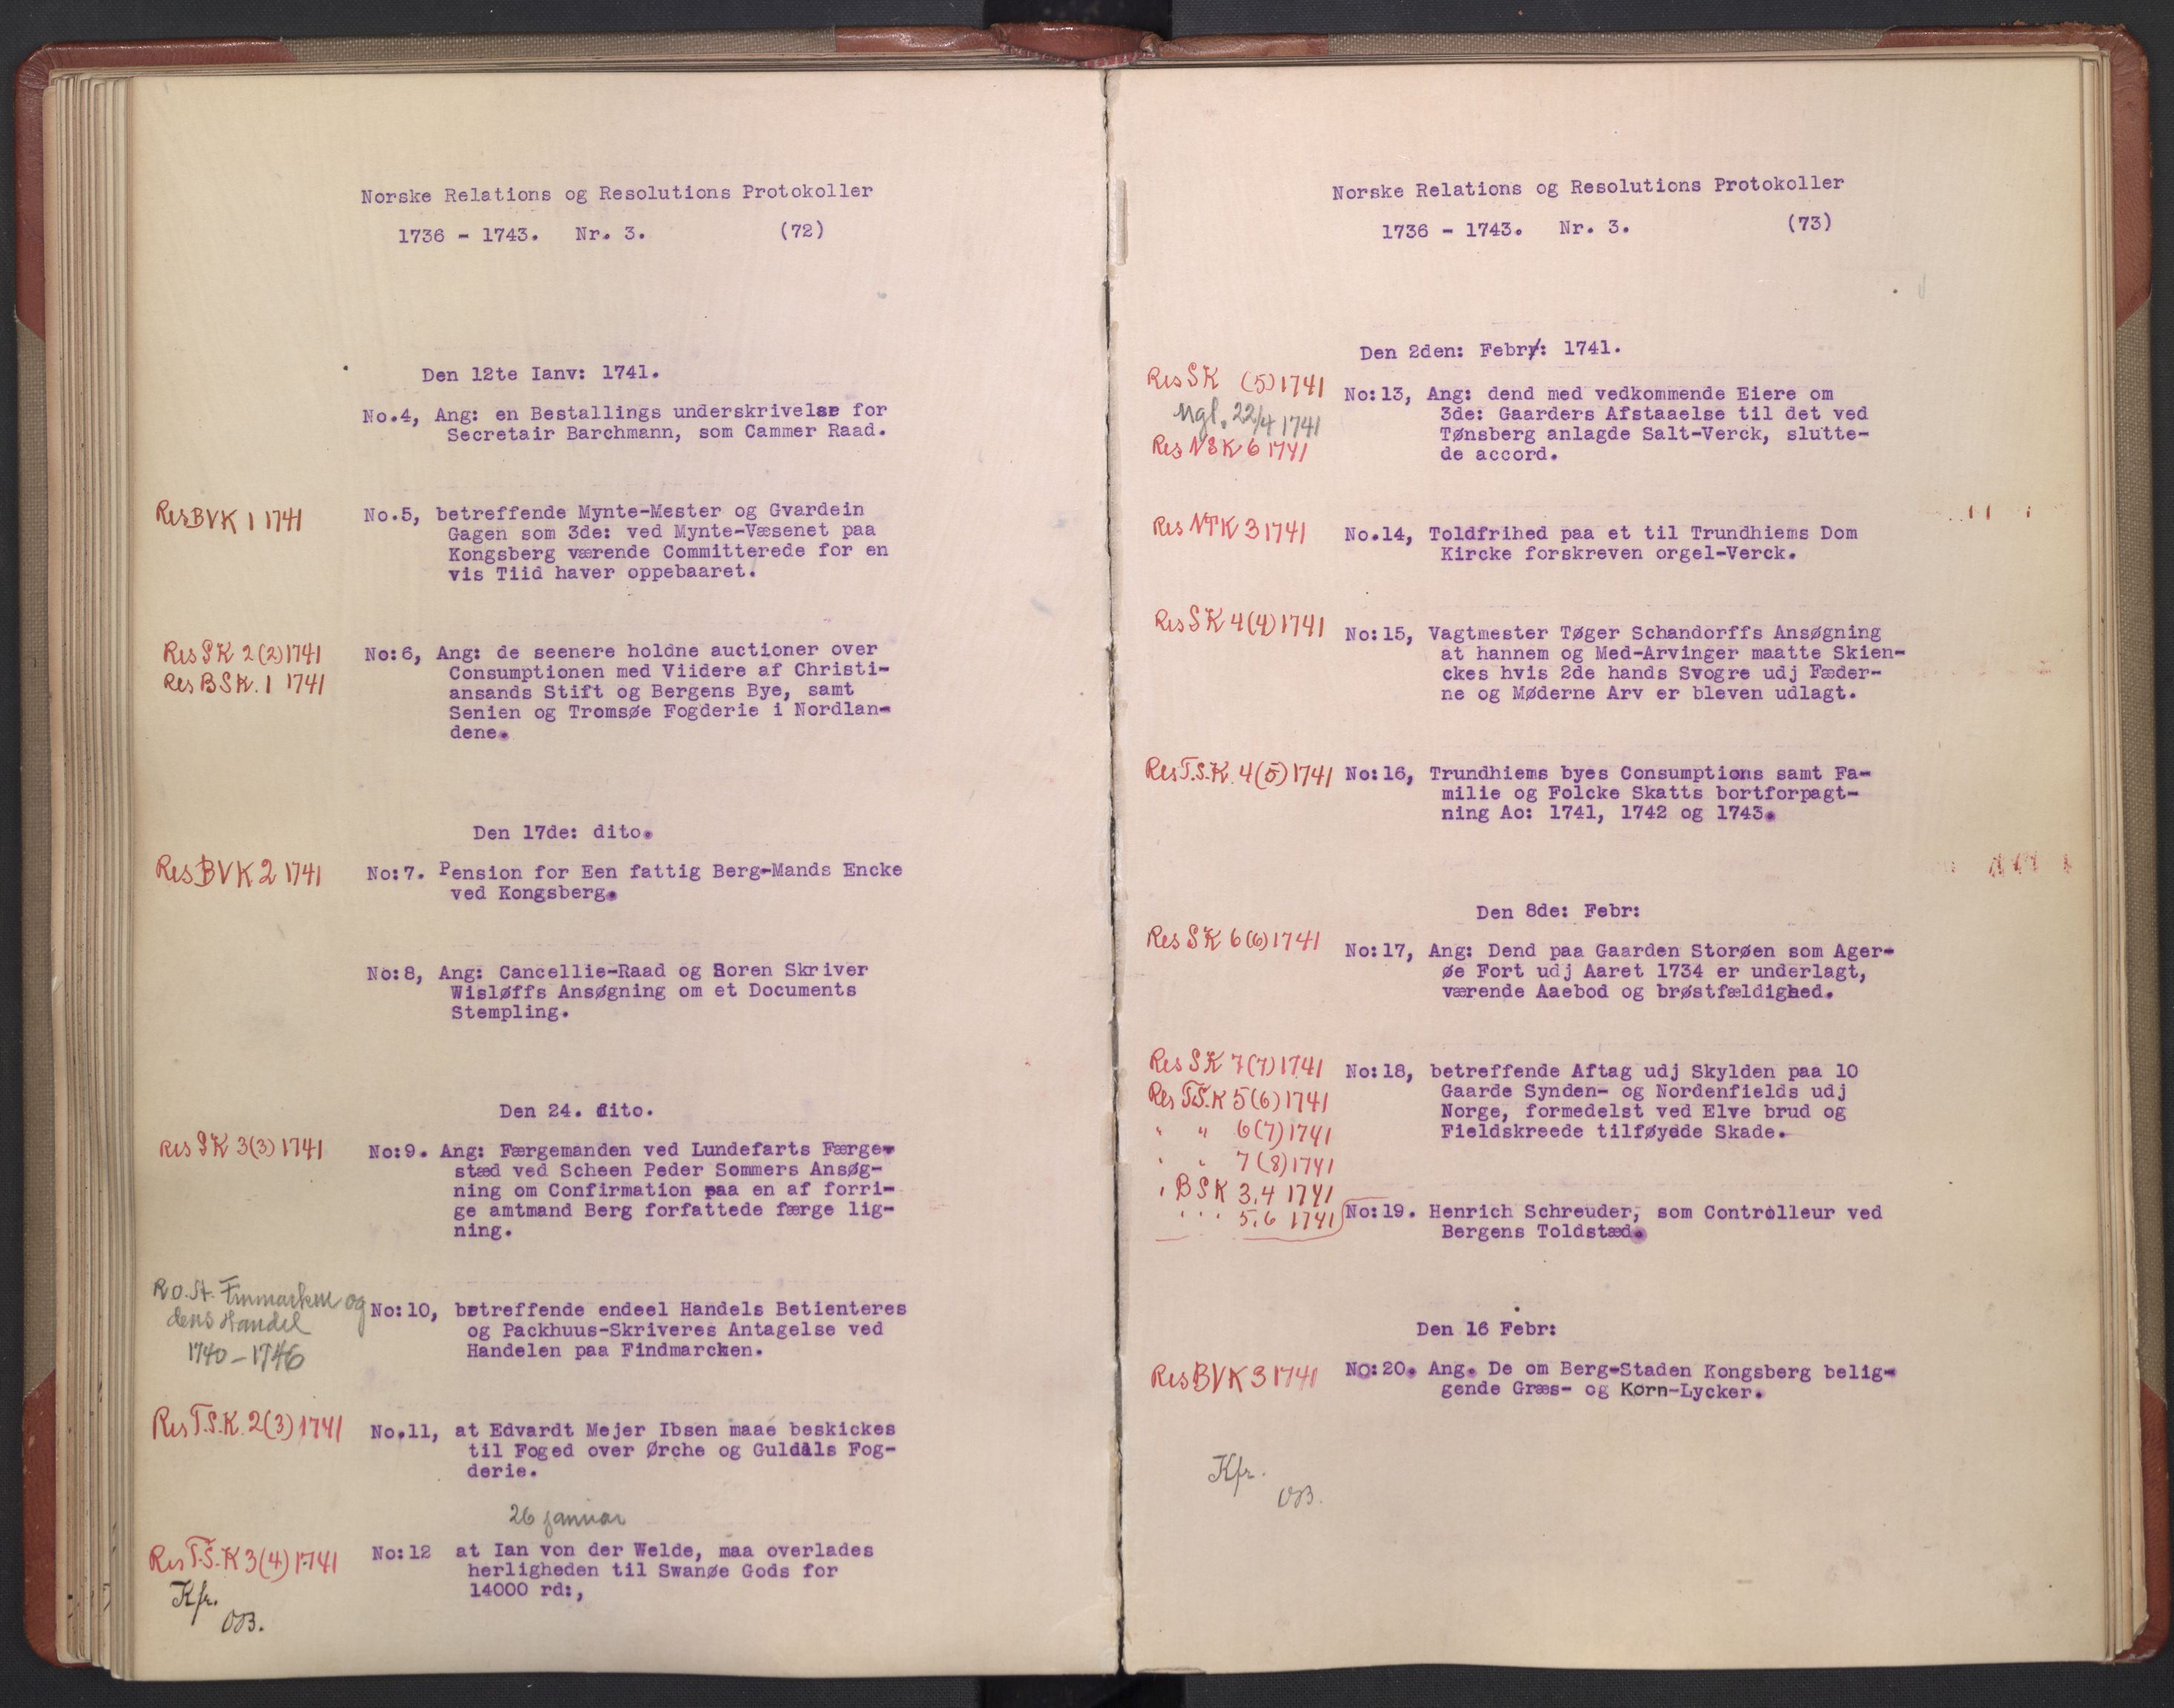 Norske Relations og Resolutions Protokoller
1736 - 1743. Nr. 3. (72)
Den 12te Ianv: 1741.
No.4, Ang: en Bestallings underskrivelse for
Secretair Barchmann, som Cammer Raad.
Res BVK 1 1741
No.5, betreffende Mynte-Mester og Gvardein
Gagen som 3de: ved Mynte-Væsenet paa
Kongsberg værende Committerede for en
vis Tiid haver oppebaaret.
Res SK 2(2) 1741
Res BSK. 1 1741
No:6, Ang: de seenere holdne auctioner over
Consumptionen med Viidere af Christi-
ansands Stift og Bergens Bye, samt
Senien og Tromsøe Fogderie i Nordlan-
dene.
Den 17de: dito.
Res BVK 2 1741
No:7. Pension for Een fattig Berg-Mands Encke
ved Kongsberg.
No:8, Ang: Cancellie-Raad og Soren Skriver
Wisløffs Ansøgning om et Documents
Stempling.
Den 24. dito.
Res SK 3(3) 1741
No:9. Ang: Færgemanden ved Lundefarts Færge-
stæd ved Scheen Peder Sommers Ansøg-
ning om Confirmation paa en af forri-
ge amtmand Berg forfattede færge lig-
ning.
R.O. St. Finmarken og
dens Handel
1740-1746
No:10, betreffende endeel Handels Betienteres
og Packhuus-Skriveres Antagelse ved
Handelen paa Findmarcken.
Res T.S.K. 2(3) 1741
No.11, at Edvardt Mejer Ibsen maae beskickes
til Foged over Ørche og Guldals Fog-
derie.
26 januar
Res T.S.K 3(4) 1741
No:12 at Ian von der Welde, maa overlades
herligheden til Swanøe Gods for
14000 rd:,
Kfr.
OB.
Norske Relations og Resolutions Protokoller
1736 - 1743. Nr. 3. (73)
Den 2den: Febry: 1741.
Res SK (5) 1741
Mgl. 22/4 1741
Res NSK 6 1741
No:13, Ang: dend med vedkommende Eiere om
3de: Gaarders Afstaaelse til det ved
Tønsberg anlagde Salt-Verck, slutte-
de accord.
Res NTK 3 1741
No.14, Toldfrihed paa et til Trundhiems Dom
Kircke forskreven orgel-Verck.
Res SK 4(4) 1741
No:15, Vagtmester Tøger Schandorffs Ansøgning
at hannem og Med-Arvinger maatte Skien-
ckes hvis 2de hands Svogre udj Fæder-
ne og Møderne Arv er bleven udlagt.
Res T.S.K. 4(5) 1741
No:16, Trundhiems byes Consumptions samt Fa-
milie og Folcke Skatts bortforpagt-
ning Ao: 1741, 1742 og 1743.
Den 8de: Febr:
Res SK 6(6) 1741
No:17, Ang: Dend paa Gaarden Storøen som Ager-
øe Fort udj Aaret 1734 er underlagt,
værende Aaebod og brøstfældighed.
Res SK 7(7) 1741
Res T.S.K 5(6) 1741
" " 6(7) 1741
" " 7(8) 1741
" BSK 3,4 1741
" " " 5,6 1741
No:18, betreffende Aftag udj Skylden paa 10
Gaarde Synden- og Nordenfields udj
Norge, formedelst ved Elve brud og
Fieldskreede tilføyede Skade.
No:19. Henrich Schreuder, som Controlleur ved
Bergens Toldstæd.
Den 16 Febr:
Res BVK 3 1741
No:20. Ang. De om Berg-Staden Kongsberg belig-
gende Græs- og Korn-Lycker.
Kfr.
OB.